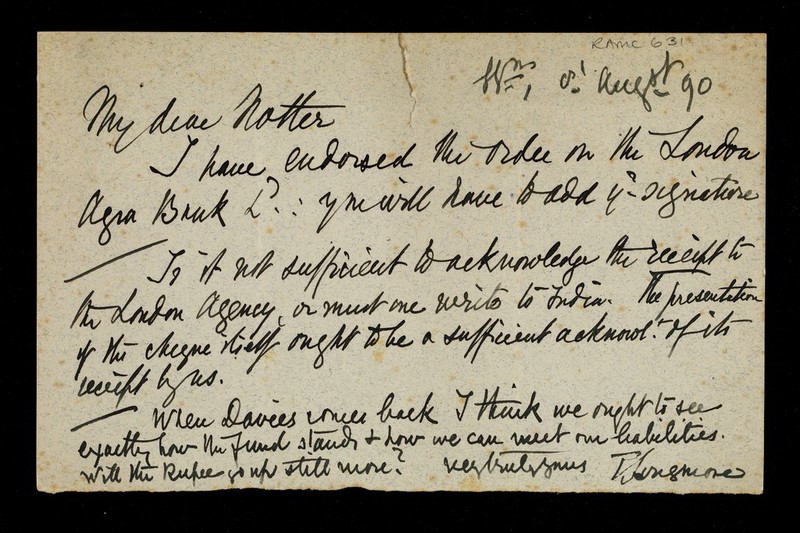 RAMC 631
8! Augst 90
My dear Notter
I have endorsed the order on the London
Agra Bank Ld.: you will have to add yr signature
Is it not sufficient to acknowledge the receipt to
the London Agency, or must one write to India. The presentation
of the cheque itself ought to be a sufficient acknowl.t of its
receipt by us.
When Davies comes back I think we ought to see
exactly how the fund stands & how we can meet our liabilities.
Will the Rupee go up still more? very truly yours T Longmore